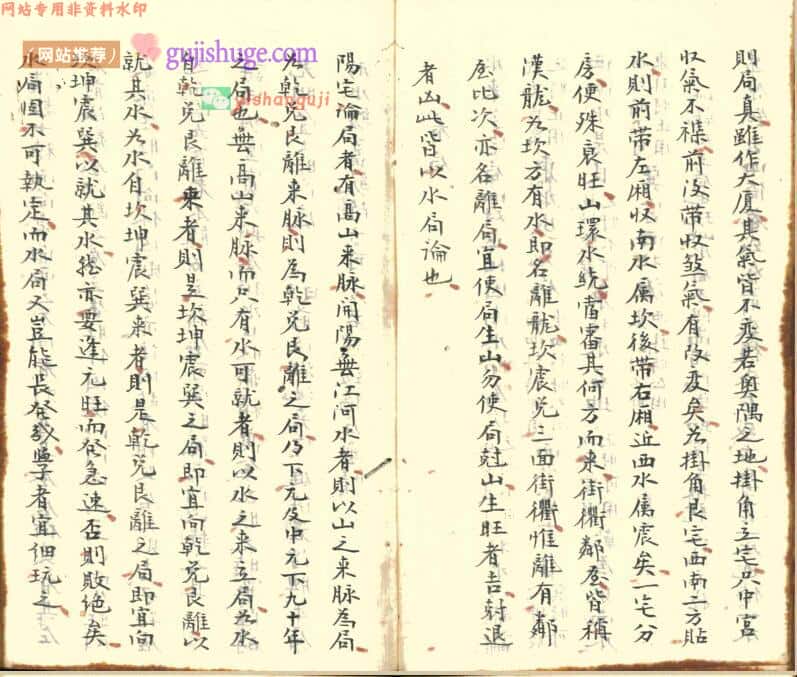 网站专用非资料水印
（网站推荐）
gujishuge.com
yishanguji
則局真雖作大厦其氣皆不变若奥隅之地掛角立宅只中宮
收氣不襍前後带收雏氣有改变矣如掛角艮宅西南二方貼
水則前带左廂收南水属坎後带右廂近西水属震矣一宅分
房便殊衰旺山環水統當審其何方而来街衢鄰屋皆稱
漢龍如坎方有水即名離龍坎震兑三面街衢惟離有鄰
屋比次亦名離局宜使局生山勿使局尅山生旺者吉尅退
者凶此皆以水局論也
陽宅論局者有高山来脉開陽無江河水者則以山之来脉為局
如乾兑艮離来脉則為乾兑艮離之局乃下元及中元下九十年
之局也無高山来脉而只有水可就者則以水之来立局如水
自乾兑艮離来者則是坎坤震巽之局即宜向乾兑艮離以
就其水如水自坎坤震巽来者則是乾兑艮離之局即宜向
坎坤震巽以就其水然亦要逢元旺而發急速否則敗绝矣
水局固不可執定而水局又豈能長發哉學者宜细玩之